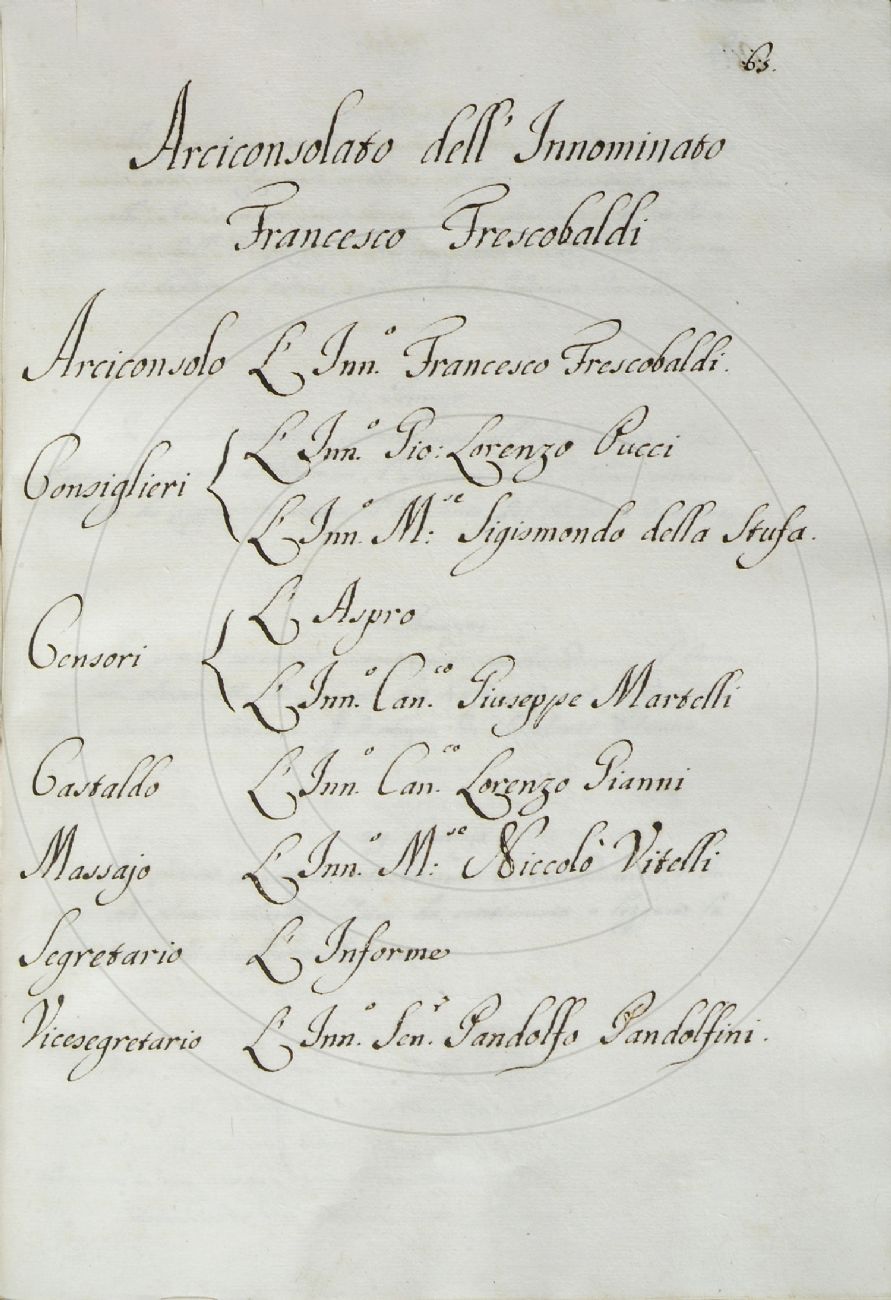 63.
Arciconsolato dell' Innominato
Francesco Frescobaldi
Arciconsolo L' Inn.º Francesco Frescobaldi.
L' Inn.º Gio: Lorenzo Pucci
Consiglieri
L' Inn.º M:se Sigismondo della Stufa.
L' Aspro
Censori
L' Inn.º Can.co Giuseppe Martelli
Castaldo L' Inn.º Can.co Lorenzo Gianni
Massajo L' Inn.º M:se Niccolò Vitelli
Segretario L' Informe
Vicesegretario L' Inn.º Sen.r Pandolfo Pandolfini.